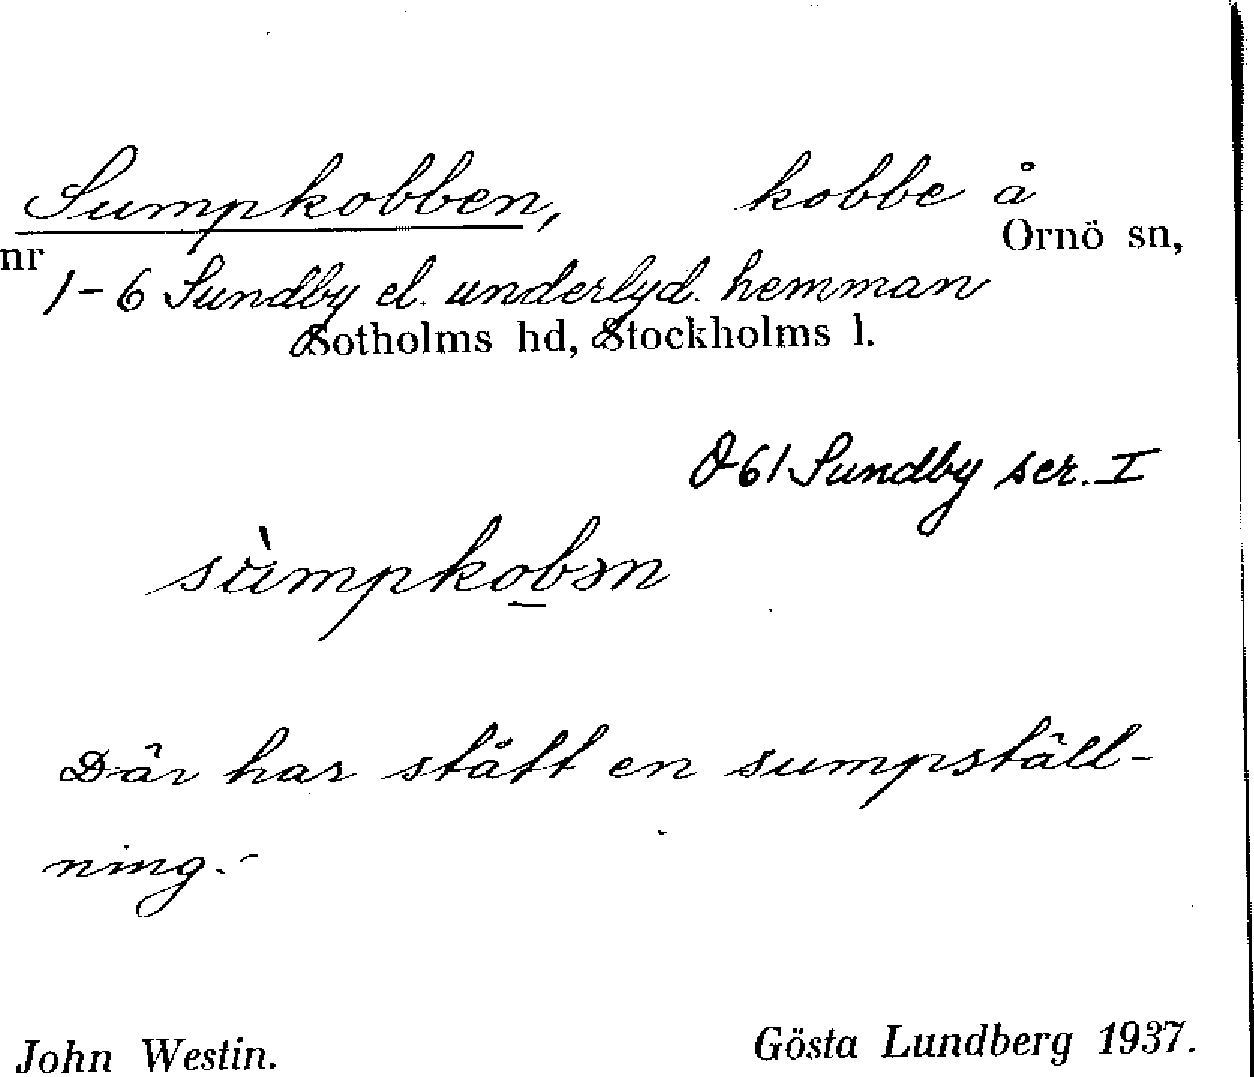 Sumpkobben, kobbe å
Ornö sn,
nr 1-6 Sundby el. underlyd. hemman
Sotholms hd, Stockholms l.
061 Sundby ser. I
sùmpkobən
Där har stått en sumpställ-
ning.-
John Westin. Gösta Lundberg 1937.